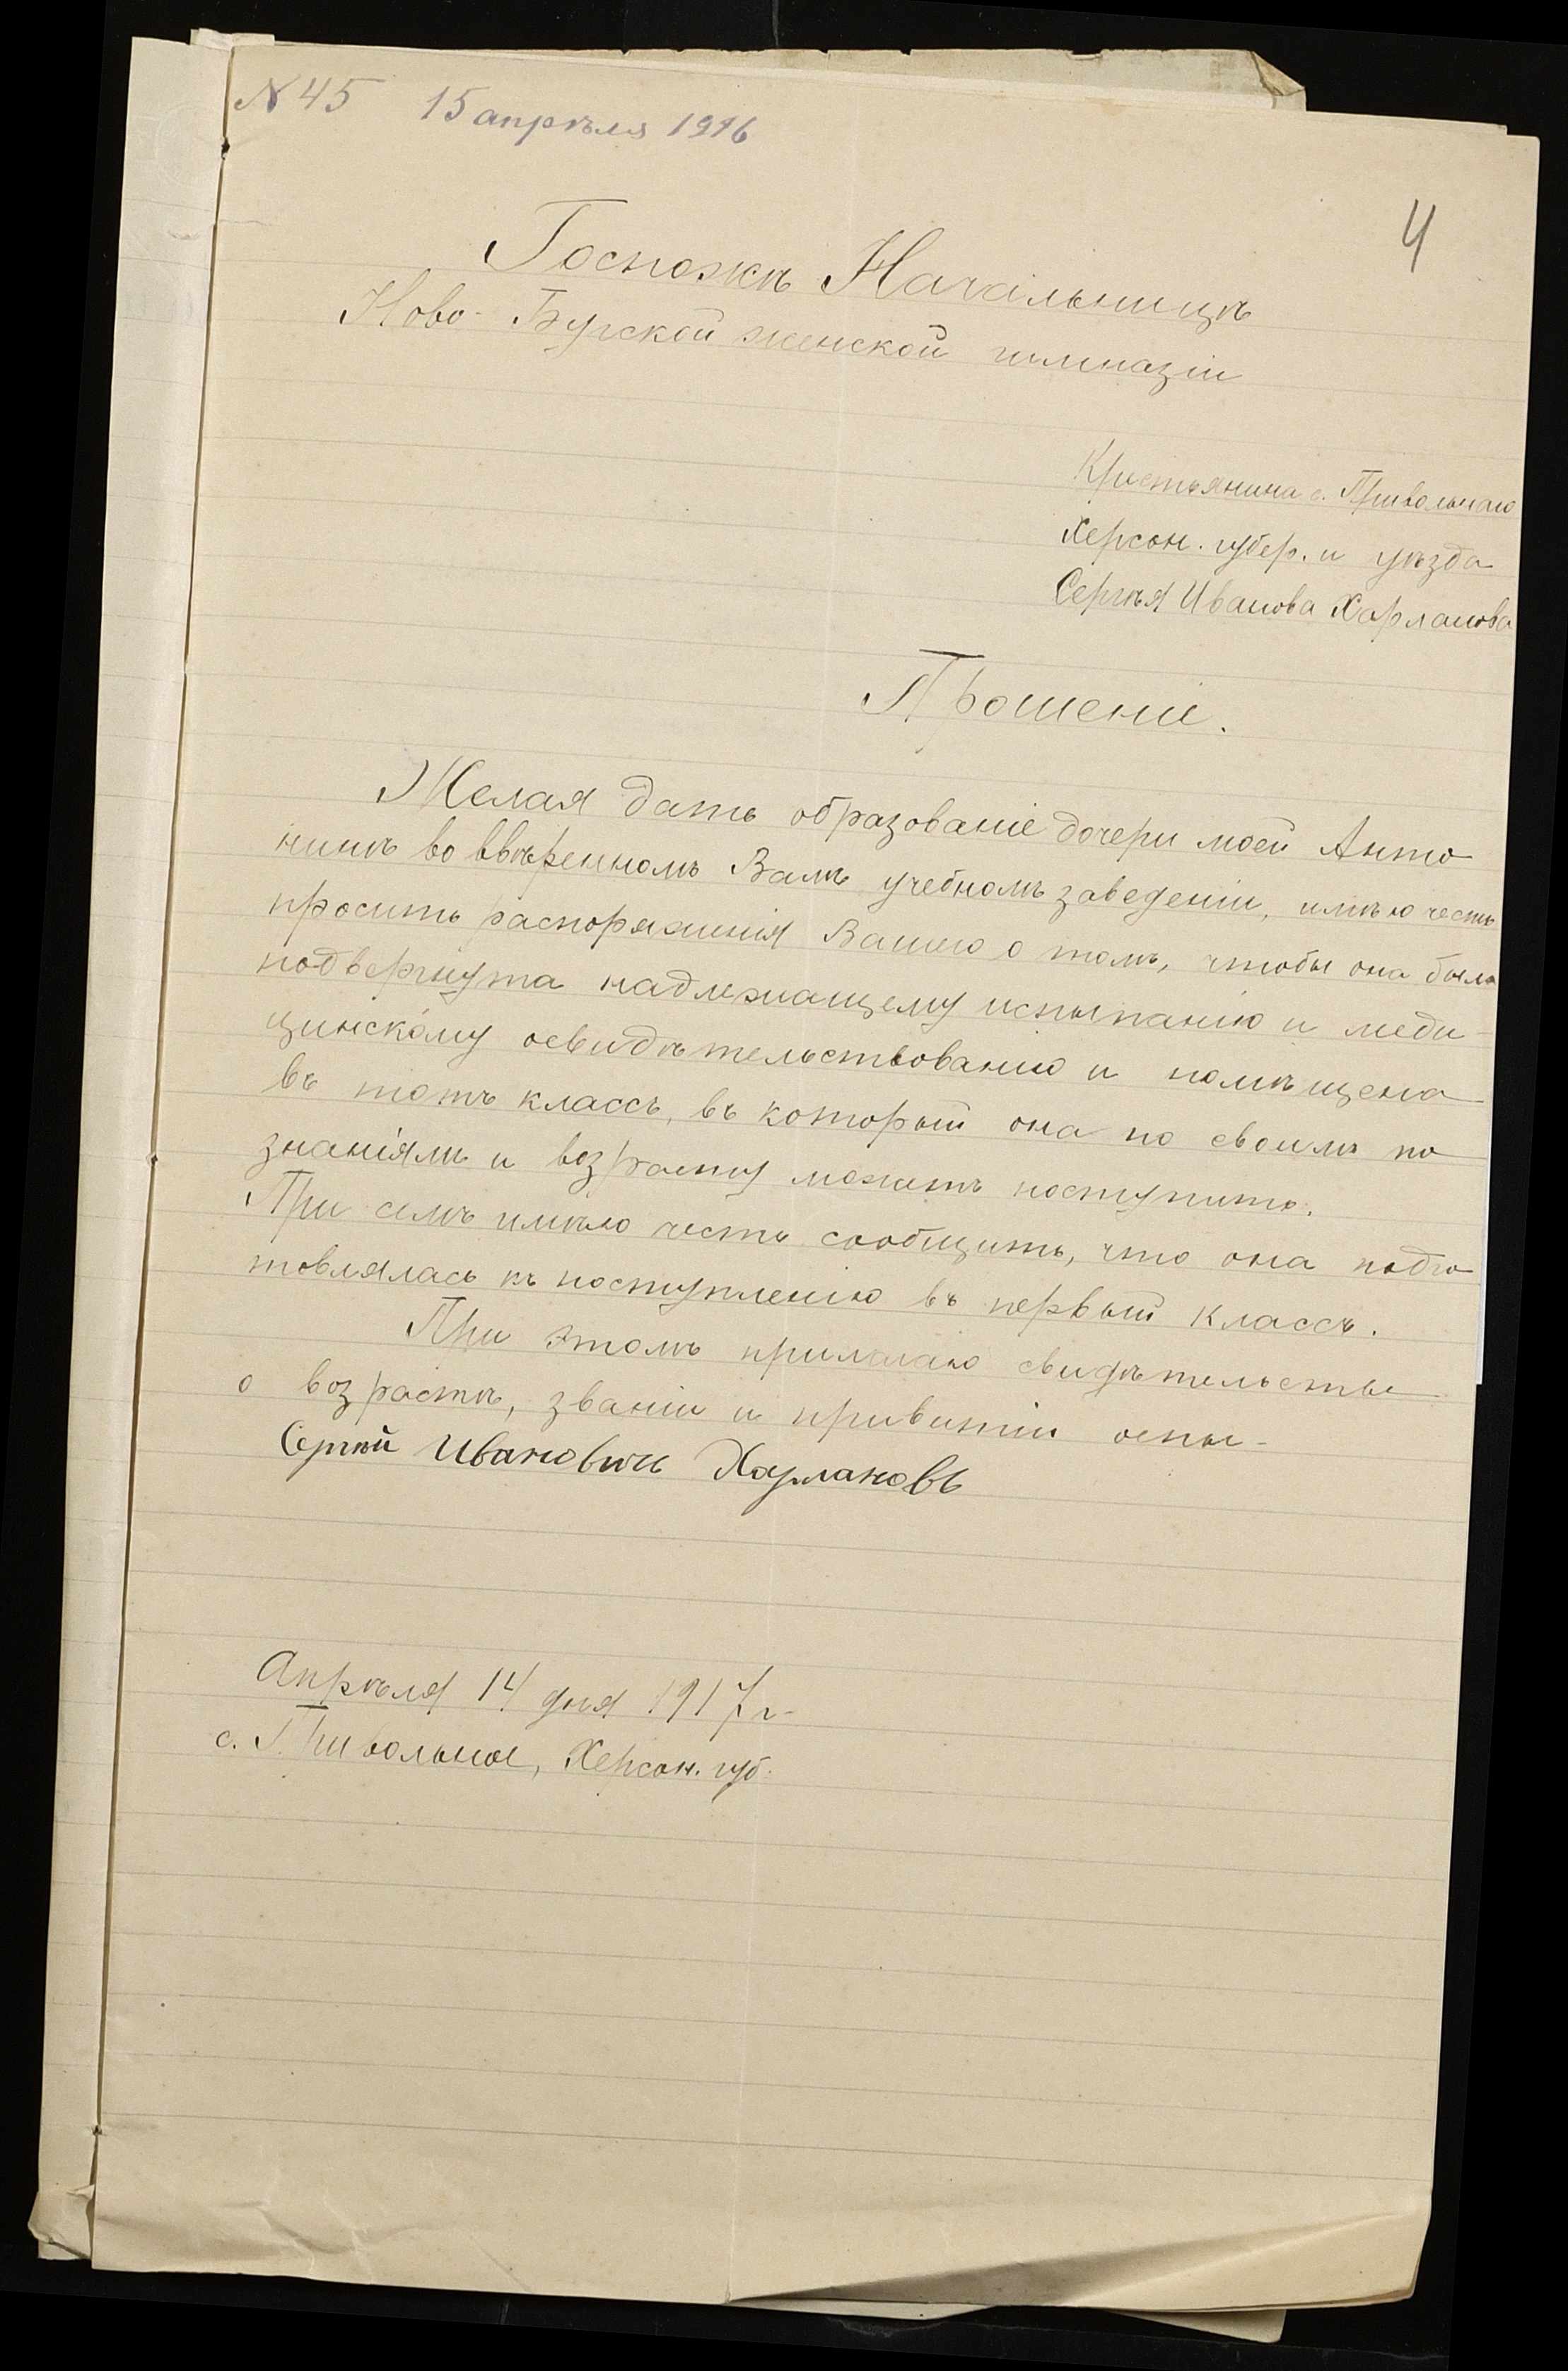 N 45 15 апрѣля 1916
4
Госпожѣ Начальницѣ
Ново-Бугской женской гимназіи
Крестьянина с. Привольнаго
Херсон. губер. и уѣзда
Сергѣя Иванова Харланова
Прошеніе.
Желая дать образованіе дочери моей Анто
нинѣ во ввѣренномъ Вамъ учебномъ заведеніи, имѣю честь
просить распоряженія Вашего о томъ, чтобы она была
подвергнута надлежащему испытанію и меди-
цинскому освидѣтельствованію и помѣщена
въ тотъ классъ, въ который она по своимъ по
знаніямъ и возрасту можетъ поступить.
При семъ имѣю честь сообщить, что она подго
товлялась къ поступленію въ первый классъ.
При этомъ прилагаю свидѣтельства
о возрастѣ, званіи и привитіи оспы-
Сергѣй Ивановичъ Харлановъ
Апрѣля 14 дня 1917 г-
с. Привольное, Херсон. губ.